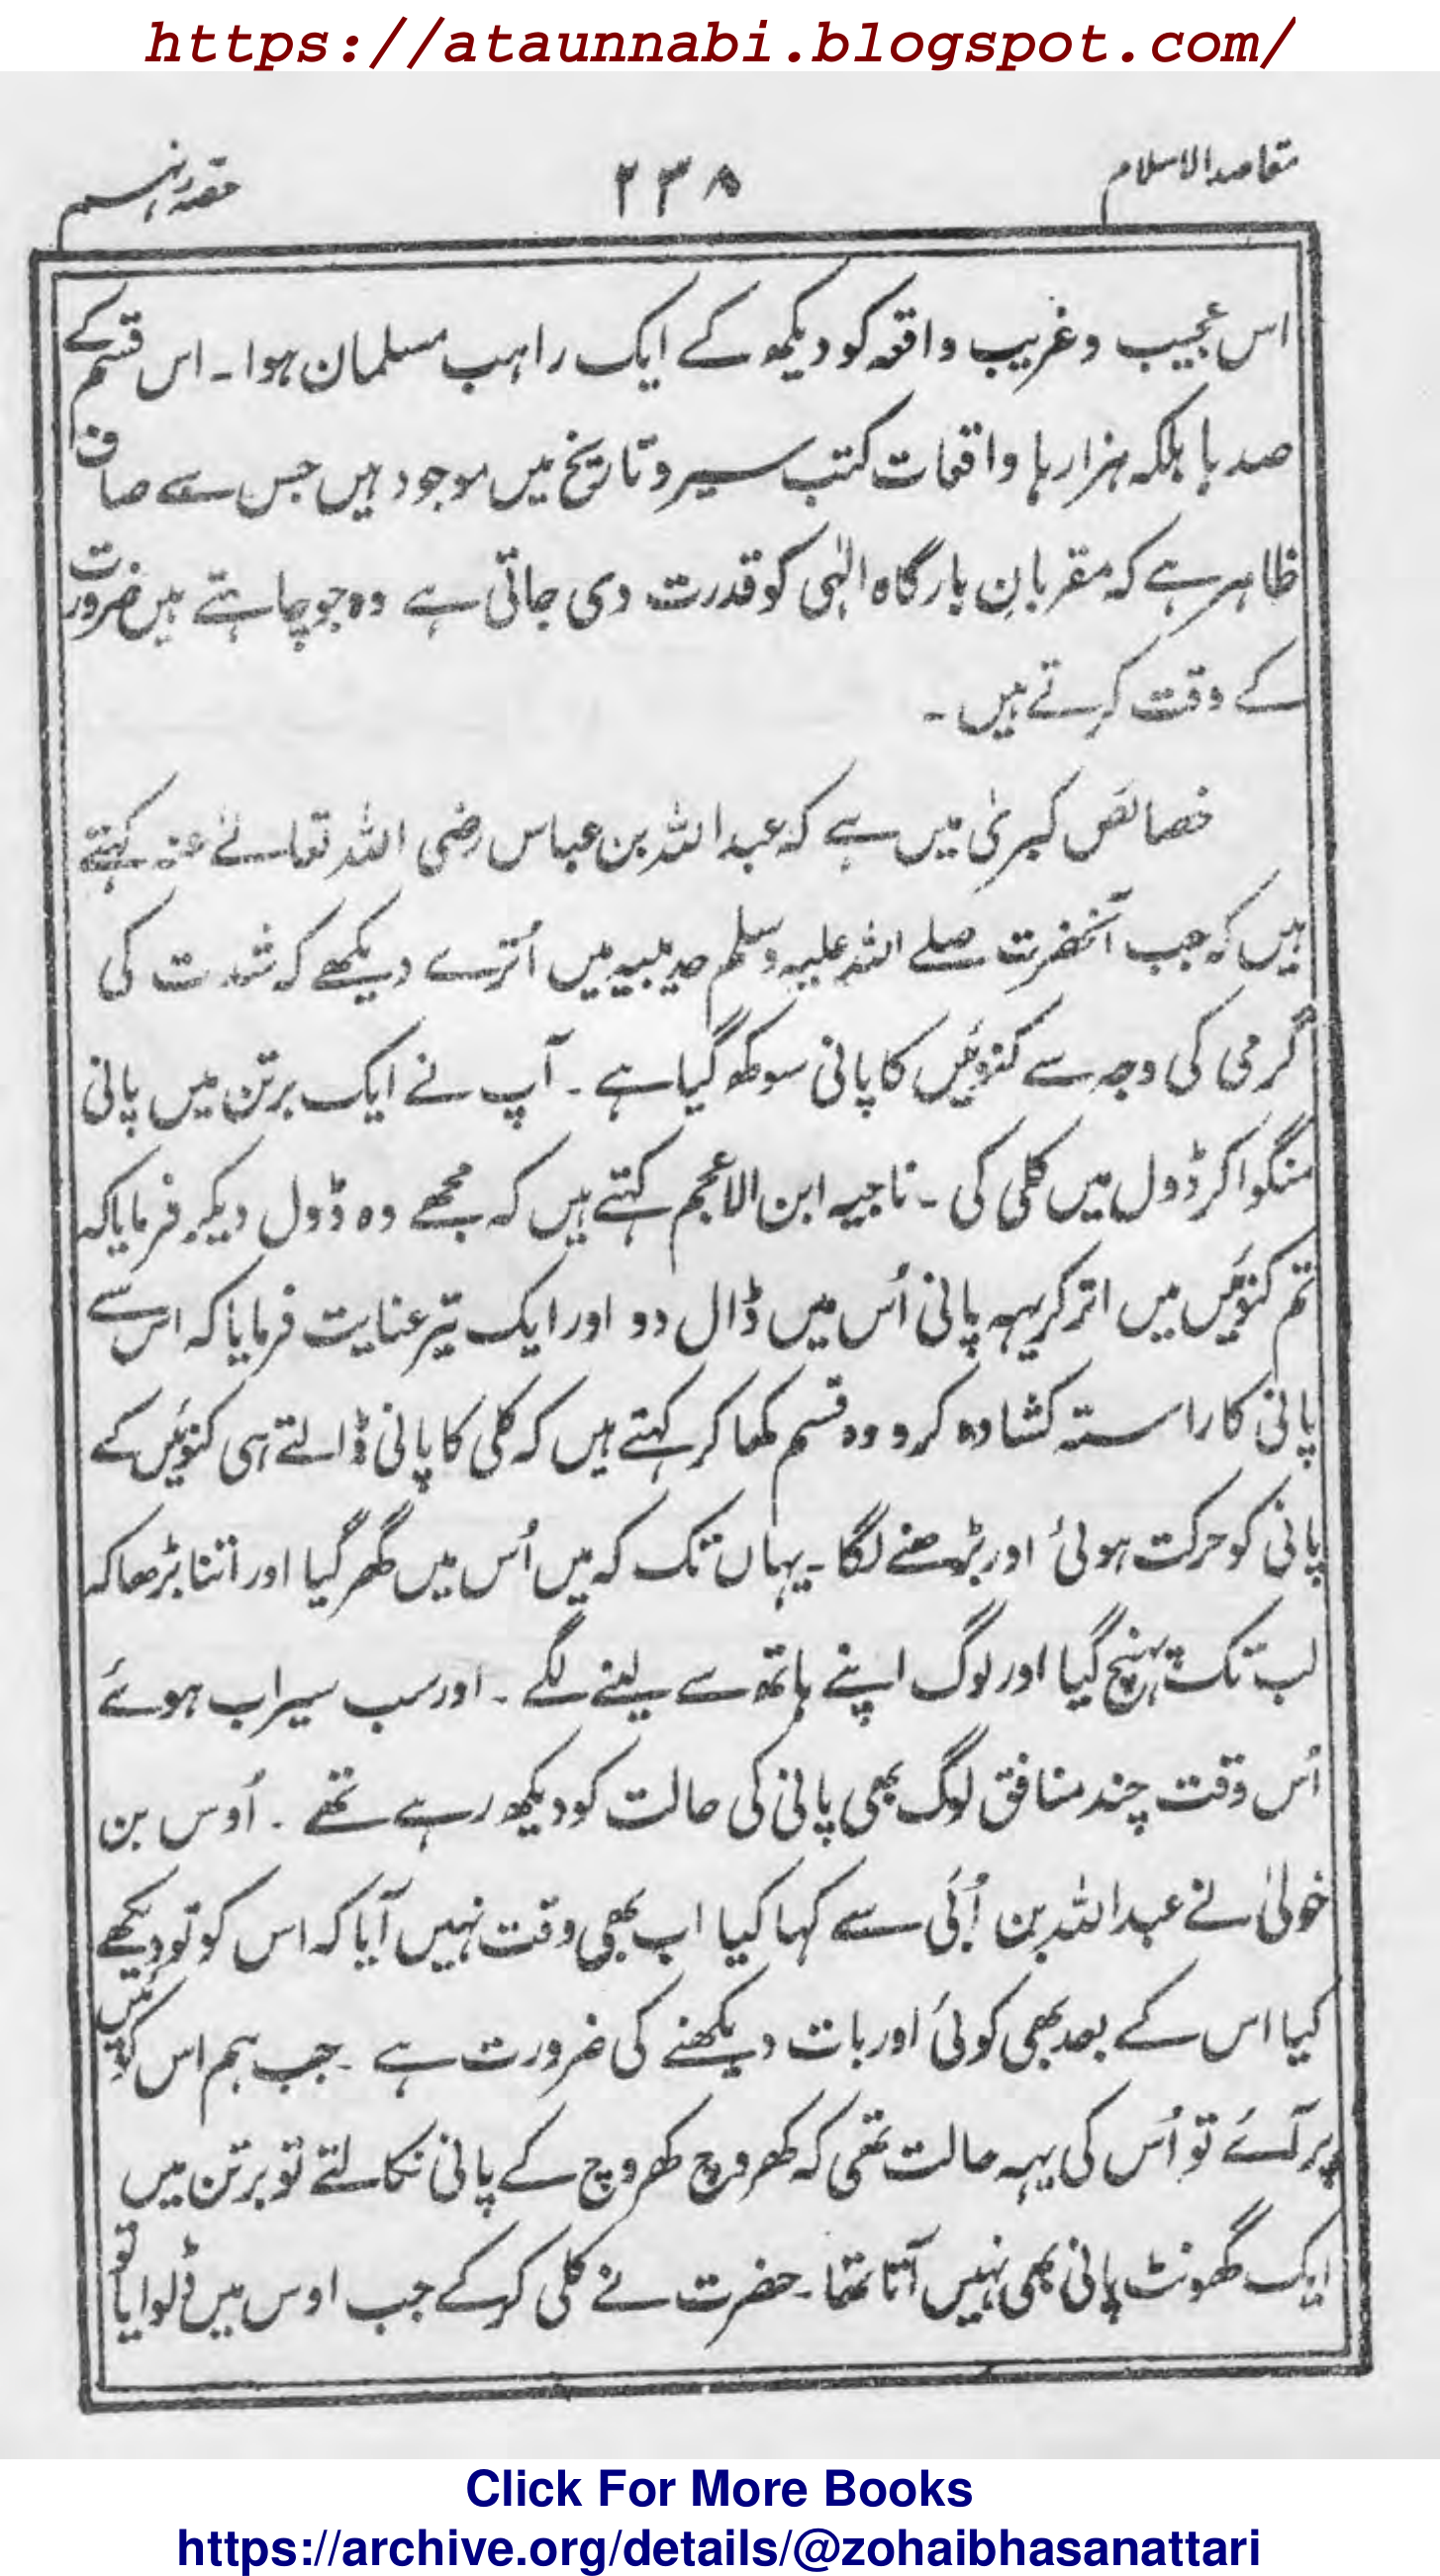 https://ataunnabi.blogspot.com/
مقاصدالاسلام
۲۳۸
حصہ نہم
اس عجیب و غریب واقعہ کو دیکھ کے ایک راہب مسلمان ہوا ۔ اس قسم کے
صدہا بلکہ ہزارہا واقعات کتب سیر و تاریخ میں موجود ہیں جس سے صاف
ظاہر ہے کہ مقربانِ بارگاہ الٰہی کو قدرت دی جاتی ہے وہ جو چاہتے ہیں ضرورت
کے وقت کرتے ہیں ۔
خصائص کبریٰ میں ہے کہ عبداللہ بن عباس رضی اللہ تعالےٰ عنہ کہتے
ہیں کہ جب آنحضرت صلے اللہ علیہ وسلم حدیبیہ میں اُترے دیکھے کہ شدت کی
گرمی کی وجہ سے کنوئیں کا پانی سوکھ گیا ہے ۔ آپ نے ایک برتن میں پانی
منگوا کر ڈول میں کلی کی ۔ ناجیہ ابن الاعجم کہتے ہیں کہ مجھے وہ ڈول دیکر فرمایا کہ
تم کنوئیں میں اتر کر یہہ پانی اُس میں ڈال دو اور ایک تیر عنایت فرمایا کہ اس سے
پانی کا راستہ کشادہ کرو وہ قسم کھا کر کہتے ہیں کہ کلی کا پانی ڈالتے ہی کنوئیں کے
پانی کو حرکت ہوئی اور بڑھنے لگا ۔ یہاں تک کہ میں اُس میں گھر گیا اور اتنا بڑھا کہ
لب تک پہنچ گیا اور لوگ اپنے ہاتھ سے لینے لگے ۔ اور سب سیراب ہوئے
اُس وقت چند منافق لوگ بھی پانی کی حالت کو دیکھ رہے تھے ۔ اُوس بن
خولیٰ نے عبداللہ بن اُبَی سے کہا کیا اب بھی وقت نہیں آیا کہ اس کو تو دیکھے
کیا اس کے بعد بھی کوئی اور بات دیکھنے کی ضرورت ہے ۔ جب ہم اس کنوئیں
پر آئے تو اُس کی یہہ حالت تھی کہ کھروچ کھروچ کے پانی نکالتے تو برتن میں
ایک گھونٹ پانی بھی نہیں آتا تھا ۔ حضرت نے کلی کر کے جب اوس میں ڈلوایا تو
Click For More Books
https://archive.org/details/@zohaibhasanattari